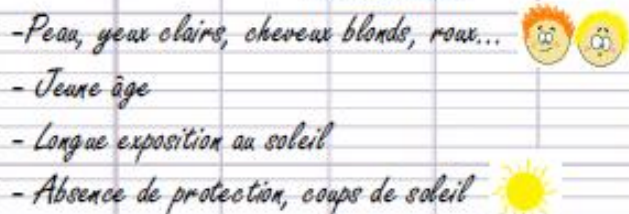 -Peau, yeux clairs, cheveux blonds, roux...
- Jeune âge
- Longue exposition au soleil
- Absence de protection, coups de soleil